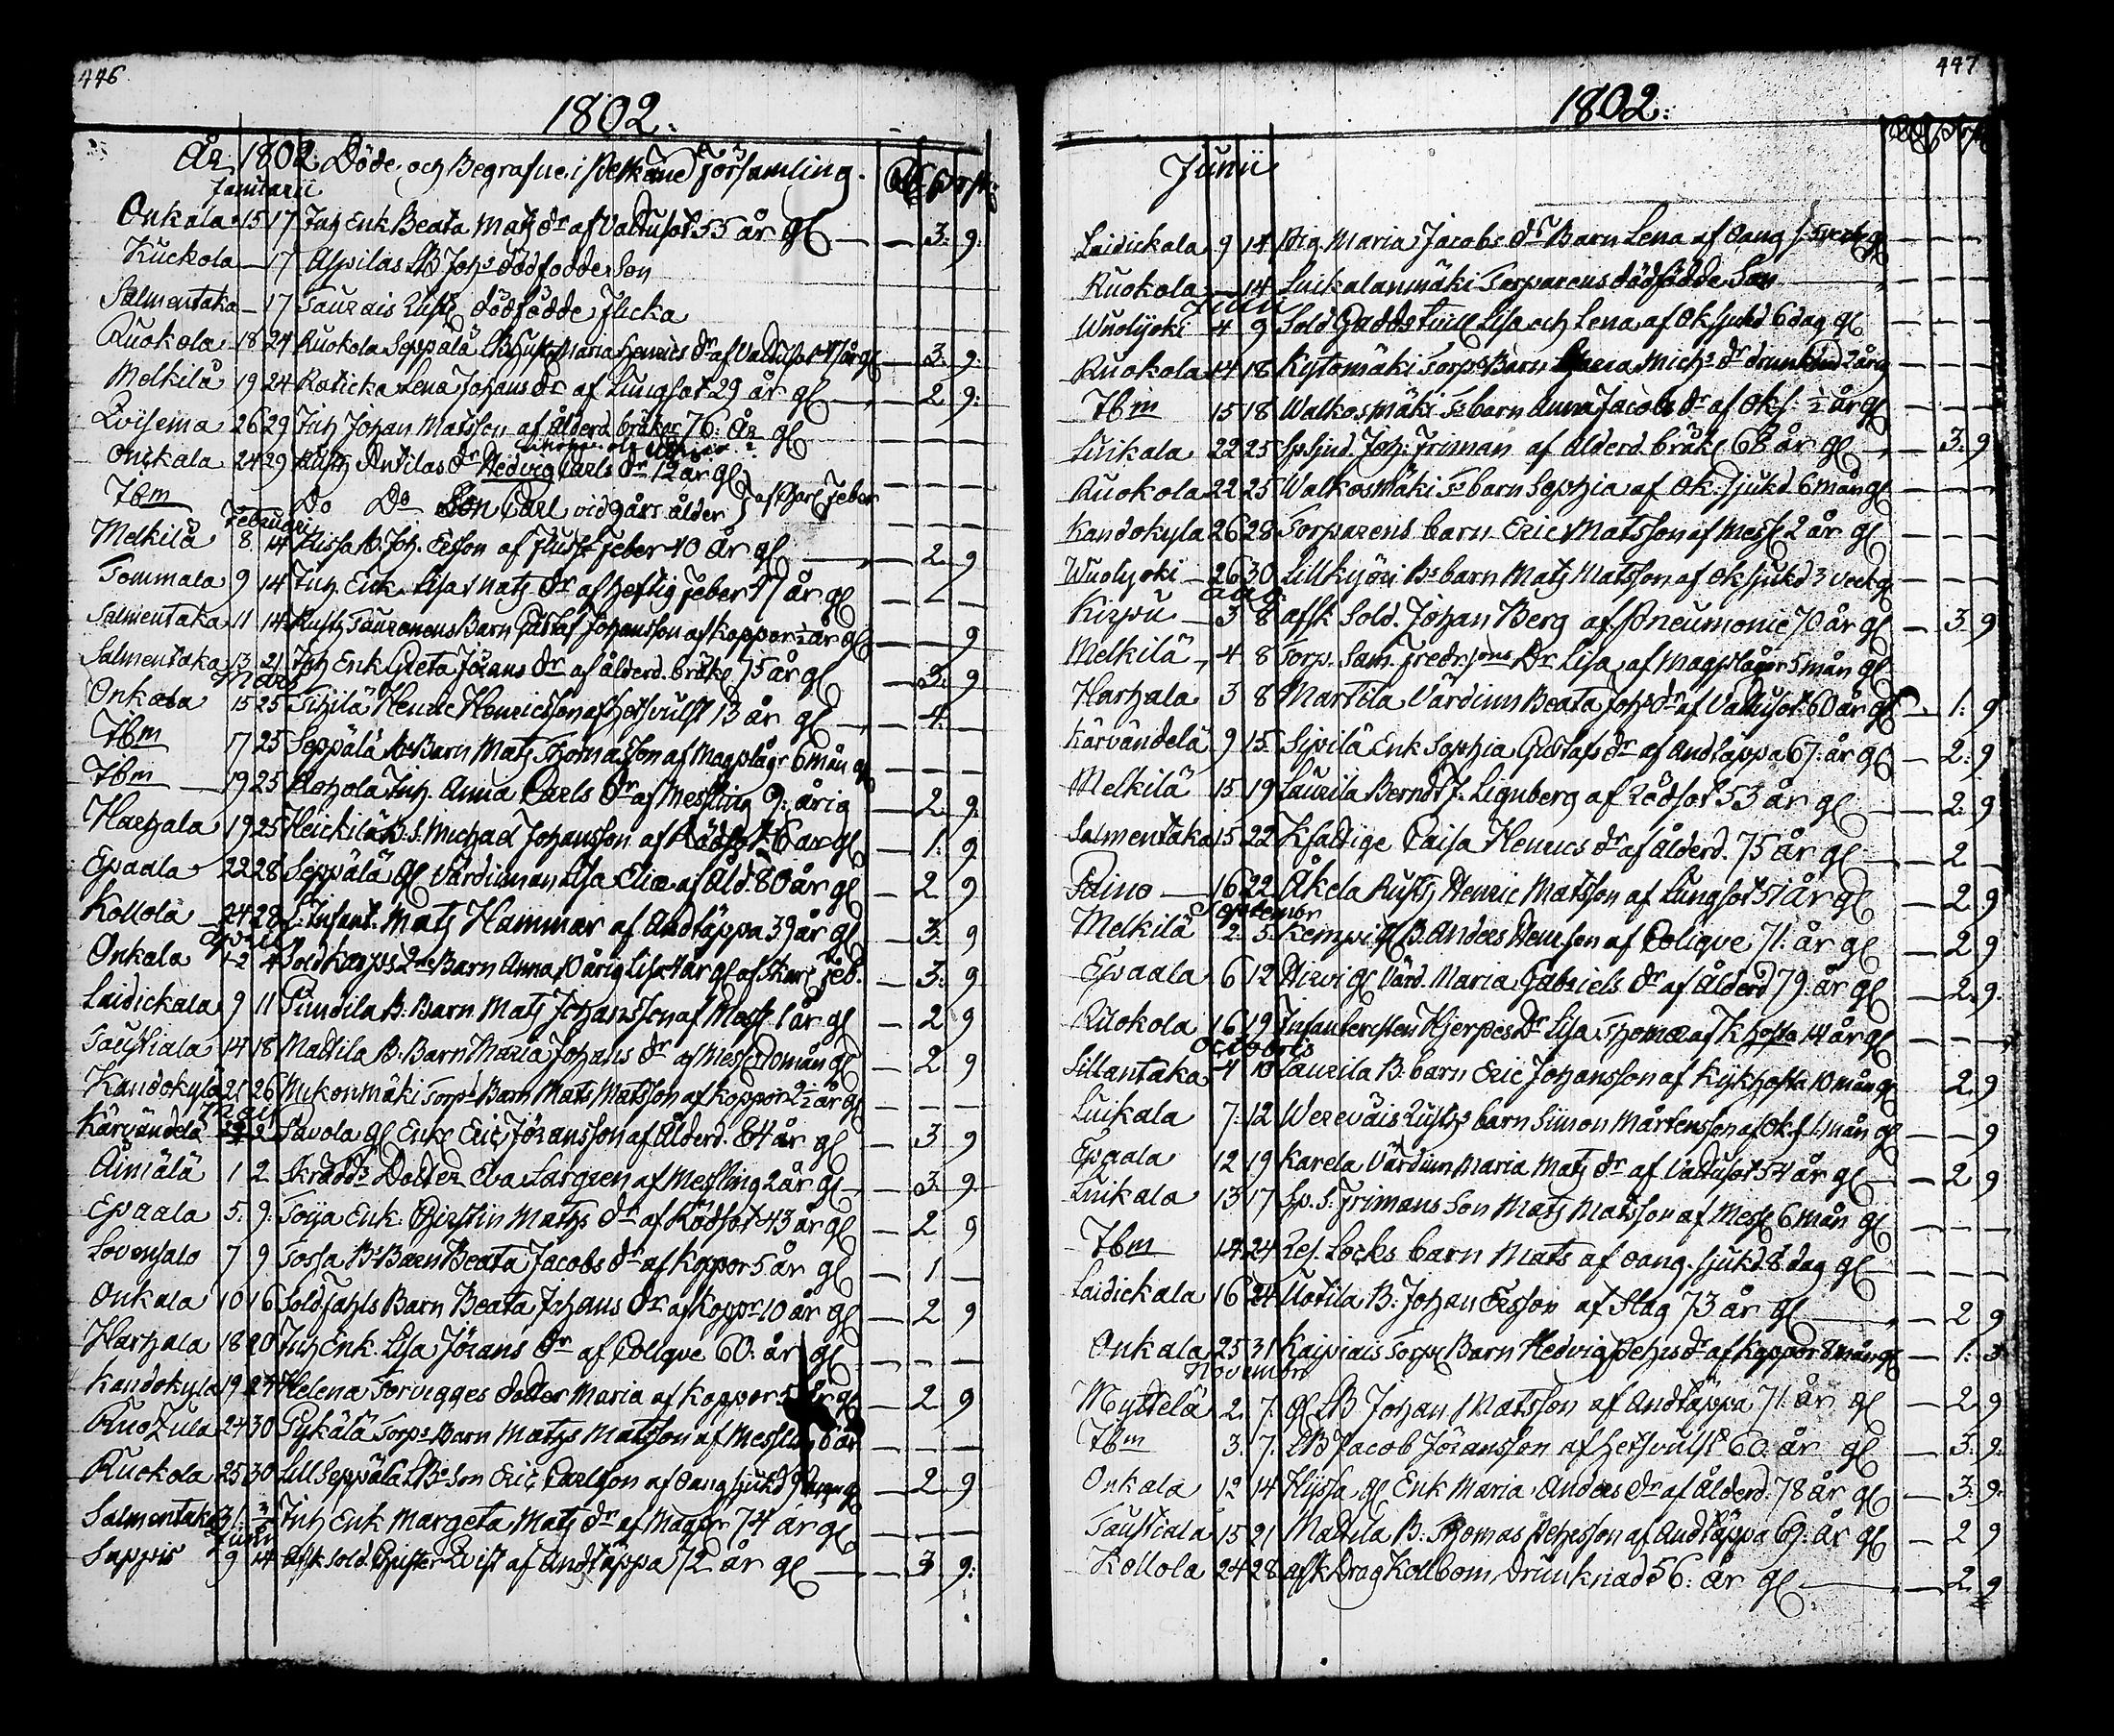 446
1802.
År 1802 Döde och Begrafne i Pelkäne Församling.
Januarii
Onkala 15 17 Inh Enk Beata Mats dr af Vattusot 55 år gl — 3. 9.
Kuckola — 17 Alpilas LB Johs dödfödde Son
Salmentaka — 17 Taurais Rusth dödfödde flicka
Ruokola 18 24 Ruokola Seppälä LB Hust Maria Henrics dr af Vattusot år gl — 3. 9.
Melkilä 19 24 Raticka Lena Johans dr af Lungsot 29 år gl — 2 9.
Qvisema 26 29 Inh Johan Matsson af Ålderd. bräkor 76. år gl
Onkala 24 29 Rusth Antilas dr Hedvig Carls dr 12 år gl — — —
Ibm Do Do Son Carl vid 9 års ålder } af Skarl Feber — — —
Februarii
Melkilä 8 14 Kissa B. Joh. Ersson af fluss feber 40 år gl — 2 9
Tommala 9 14 Inh. Enk. Lisa Mats dr af heftig feber 47 år gl — — —
Salmentaka 11 14 Rusth Tauronens Barn Gustaf Johansson af koppor ½ år gl — — 9
Salmentaka 13 21 Inh Enk Greta Jörans dr af ålderd. bräkl 75 år gl — 3. 9
Mars
Onkala 15 25 Tihilä Henric Henricsson af hetsvulst 13 år gl — 4.
Ibm 17 25 Seppälä Bs Barn Mats Thomasson af Magplågr 6 mån gl — — —
Ibm 19 25 Rohola Inh. Anna Carls dr af Messling 9. årig — 2. 9.
Harhala 19 25 Heickilä B. S. Michael Johansson af Rödsot 6 år gl — 1. 9
Epaala 22 28 Seppälä Gl Värdinnan Lisa Eliæ af Åld. 80 år gl — 2 9
Kollola 24 28 L. Infant. Mats Hammar af Andtäppa 39 år gl — 3. 9
April
Onkala 2 4 Sold Karps 2ne Barn Anna 10 årig Lisa 4 år gl af Skarl feb. — 3. 9
Laidickala 9 11 Pundila B. Barn Mats Johansson af Messl. 1 år gl — 2 9
Taustiala 14 18 Mattila B. Barn Maria Johans dr af Messl 10 mån gl — 2 9
Kandokylä 21 26 Mykenmäki Torps Barn Mats Matsson af koppor 2½ år gl — — —
Maji
Kärvändelä 2 Savola gl Enkl Eric Jöransson af Ålderd. 84 år gl — 3 9
Äimälä 1 2 Skrädds Dotter Eva Largren af Messling 2 år gl — 3. 9.
Epaala 5. 9. Toija Enk. Christin Mathes dr af Rödsot 43 år gl — 2 9
Lovensalo 7 9 Tossa Bs Barn Beata Jacobs dr af koppor 5 år gl — 1 —
Onkala 10 16 Sold fahls Barn Beata Johans dr af koppr 10 år gl — 2 9
Harhala 18 20 Inh Enk. Lisa Jörans dr af Colique 60. år gl — — —
Kandokyla 19 27 Helena Torvegges dotter Maria af koppor 5 år gl — 2 9
24 30 Pykälä Torps Barn Mathes Matsson af Messling 6 år — — —
Kuckola 25 30 Lill Seppälä LBs Son Eric Carlsson af oang sjukd 9 dagar gl — 2 9
Salmentaka 31. Inh Enk Margeta Mats dr af Magpr 74 år gl — — —
Junii
Sappis 9 14 Afsk Sold Christer Qvist af Andtäppa 72 år gl — 3 9.
447
1802.
Junii
Laidickala 9 14 Pig. Maria Jacobs dr Barn Lena af oang s. — — —
Ruokola — 14 Luikalanmäki Torparens dödfödde Son
Julii
Wuolijoki 4 9 Sold Gadds tvill Lisa och Lena af Ok sjukd 6 dag gl — — —
Ruokola 14 18 Kystomäki Torps Barn Maria Michs dr drunknad 2 år g — — —
Ibm 15 18 Walkosmäki Ts barn Anna Jacobs dr af Oks. ½ år gl — — —
Luikala 22 25 Sp Sjnd. Joh. Friman af Ålderd. bräkl 68 år gl — 3. 9
Ruokola 22 25 Walkosmäki Ts barn Sophia af Ok. sjukd 6 mån gl — — —
Kandokyla 26 28 Torparens barn Eric Matsson af Messl 2 år gl — — —
Wuolijoki — 26 30 Lillkyöri Bs barn Mats Matsson af Ok sjukd 3 veck g — — —
Aug.
Kirpu — 3 8 afsk Sold. Johan Berg af Pneumonie 70 år gl — 3. 9
Melkilä 4 8 Torp. Sam. Fredrsons Dr Lisa af Magplågor 5 mån gl
Harhala 3 8 Martila Värdinn Beata Johs dr af Vattusot 60 år gl — 1. 9
Kärvändelä 9 15 Sipilä Enk Sophia Gustafs dr af Andtäppa 67. år gl — 2. 9
Melkilä 15 19 Laurila Berndt J. Lignberg af Rödsot 53 år gl — 2. 9
Salmentaka 15 22 Kfattige Caisa Henrics dr af Ålderd. 75 år gl — 2 —
Paino — 16 22 Äkela Rusth Henric Matsson af Lungsot 51 år gl — 2 9
Septembr
Melkilä 2. 5. Kempi gl B. Anders Henrsson af Colique 71. år gl — 2 9
Epaala 6 12 Hirvi gl Värd. Maria Gabriels dr af Ålderd 79. år gl — 2. 9.
Ruokola 16 19 Infanteristen Hjerpes Dr Lisa Thomæ af K hosta 14 år gl — — —
Octobris
Sillantaka 4 10 Laurila B. barn Eric Johansson af kikhosta 10 mån gl 2. 9
Luikala 7. 12 Wereväis Rusths barn Simon Mårtensson af Okf 1 mån gl — — 9
Epaala 12 19 Karela Värdinn Maria Mats dr af Vattusot 54 år gl — 2 9
Luikala 13 17 Sp. S. Frimans Son Mats Matsson af Messl 6 mån gl — — —
Ibm 14 24 Ref. Locks barn Mats af oang. sjukd. 8 dag gl — — — —
Laidickala 16 24 Uotila B. Johan Ersson af Slag 73 år gl — 2 9
Onkala 25 31 Kaipiais Torps Barn Hedvig Pehrs dr af koppor 8 mån gl — 1. 3
Novembr
Myttelä 2. 7. gl LB Johan Matsson af Andtäppa 71. år gl — 2. 9
Ibm 3. 7. LB Jacob Jöransson af hetsvulst 60. år gl — 3. 9.
Onkala 12 14 Hyssa gl Enk Maria Anders dr af Ålderd. 78 år gl — 3. 9.
Taustiala 15 21 Mattila B. Thomas Pehrsson af Andtäppa 69. år gl — 2 9
Kollola 24 28 afsk Drag Kollbom drunknad 56. år gl — 2. 9